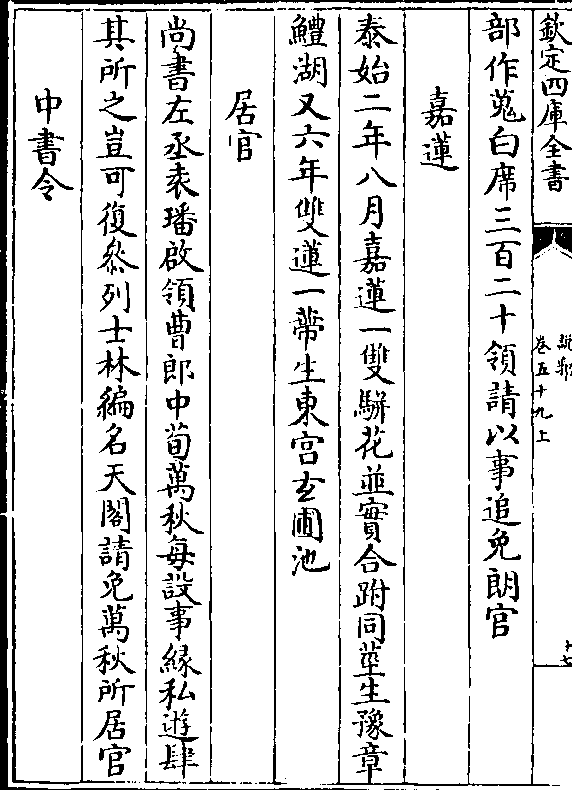 欽定四庫全書
說郛
卷五十九上
十七
部作蒐白席三百二十領請以事追免朗官
嘉蓮
泰始二年八月嘉蓮一雙駢花並實合跗同莖生豫章
鱧湖又六年雙蓮一蔕生東宫玄圃池
居官
尚書左丞袁璠啟領曹郎中荀萬秋每設事緣私遊肆
其所之豈可復叅列士林編名天閣請免萬秋所居官
中書令